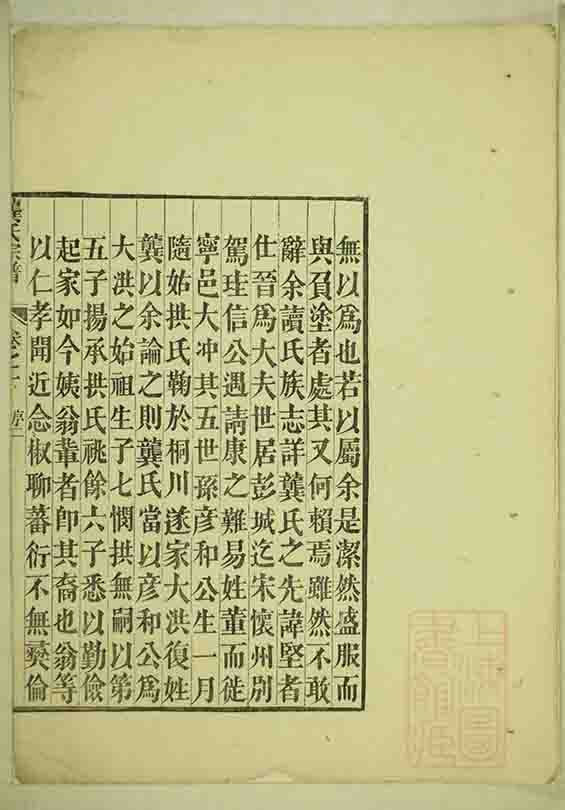 無以爲也若以屬余是潔然盛服而
與負塗者處其又何賴焉雖然不敢
辭余讀氏族志詳龔氏之先諱堅者
仕晉爲大夫世居彭城迄宋懷州別
駕珪信公遇請康之難易姓董而徙
寧邑大冲其五世孫彦和公生一月
隨姑拱氏鞠於桐川遂家大洪復姓
龔以余論之則龔氏當以彦和公爲
大洪之始祖生子七憫拱無嗣以第
五子揚承拱氏祧餘六子悉以勤儉
起家如今姨翁輩者卽其裔也翁等
以仁孝聞近念椒聊蕃衍不無彝倫
龔氏宗譜
卷之一 序二
上海圖書館藏